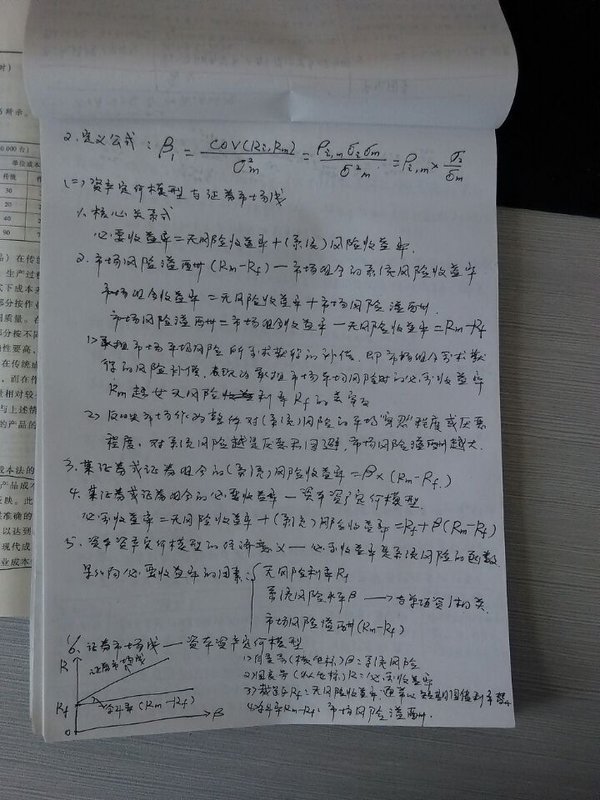 所示。
单位成本
传统
30
20
40
90
2. 定义公式：β₁ = COV(Ri,Rm)/σ²m = ρi,mσiσm/σ²m = ρi,m × σi/σm
(二) 资产定价模型与证券市场线
1. 核心关系式
必要收益率＝无风险收益率＋(系统)风险收益率.
2. 市场风险溢酬(Rm－Rf)—市场组合的系统风险收益率
市场组合收益率＝无风险收益率＋市场风险溢酬.
市场风险溢酬＝市场组合收益率－无风险收益率＝Rm－Rf
1) 承担市场平均风险所要求获得的补偿，即市场组合要求获
得的风险补偿，表现为承担市场平均风险时的必要收益率
Rm超出无风险利率Rf的
2) 反映市场作为整体对(系统)风险的平均"容忍"程度或厌恶
程度，对系统风险越是厌恶和回避，市场风险溢酬越大.
3. 某证券或证券组合的(系统)风险收益率＝β×(Rm－Rf)
4. 某证券或证券组合的必要收益率—资本资产定价模型.
必要收益率＝无风险收益率＋(系统)风险收益率＝Rf＋β(Rm－Rf)
5. 资本资产定价模型的经济意义—必要收益率是系统风险的函数
影响必要收益率的因素：
无风险利率Rf
系统风险水平β → 与单项资产相关
市场风险溢酬(Rm－Rf)
6. 证券市场线—资本资产定价模型
R
证券市场线
Rf
斜率(Rm－Rf)
0
β
1) 自变量(横坐标)β＝系统风险
2) 因变量(纵坐标)R＝必要收益率
3) 截距Rf＝无风险收益率，通常以短期国债利率替
4) 斜率Rm－Rf＝市场风险溢酬.